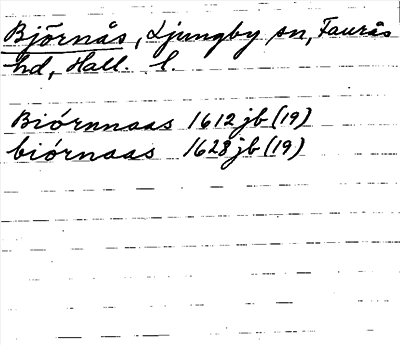 Björnås, Ljungby sn, Faurås
hd, Hall. l.
Biórnnaas 1612 jb (19)
biórnaas 1628 jb (19)